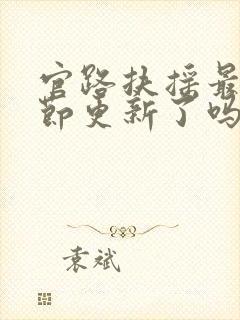 官路扶摇最
节更新了吗
袁斌